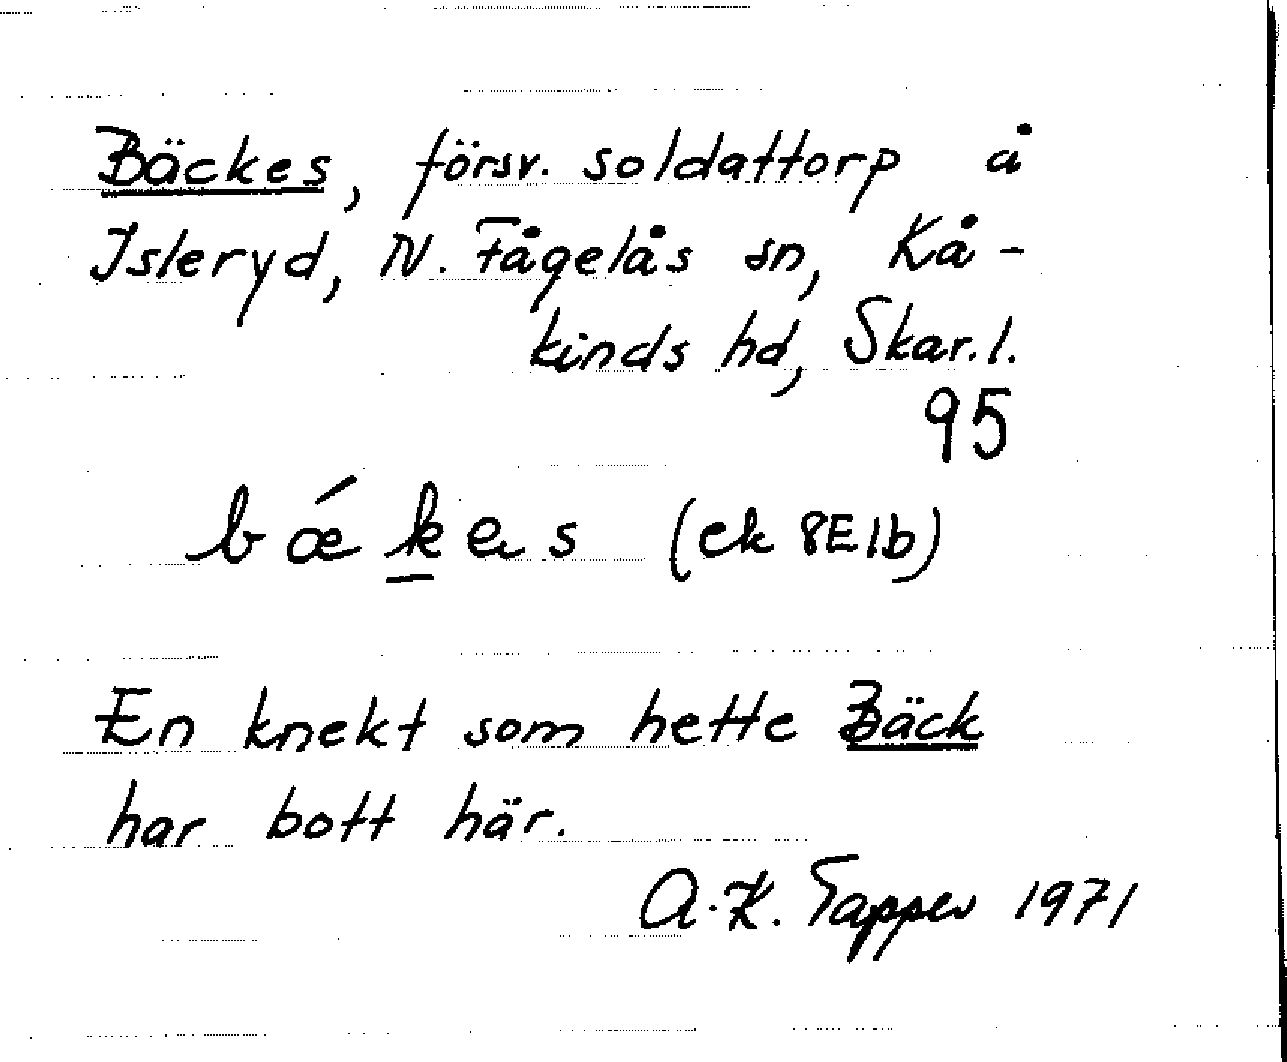 Bäckes, försv. soldattorp å
Isleryd, N. Fågelås sn, Kå-
kinds hd, Skar. l.
95
bǽk̲es (ek 8E1b)
En knekt som hette Bäck
har bott här.
A.-K. Tapper 1971